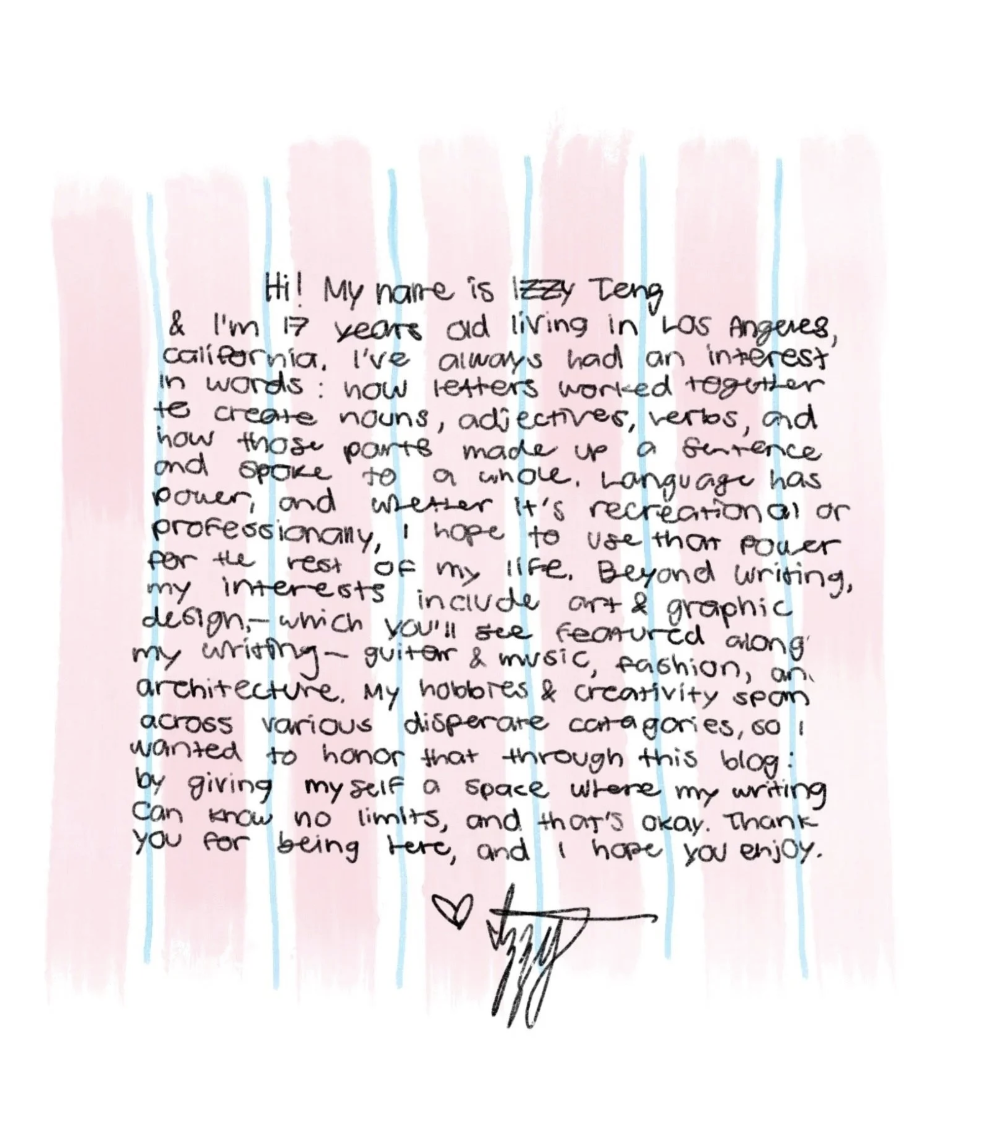 Hi! My name is Izzy Teng
& I'm 17 years old living in Los Angeles,
california. I've always had an interest
in words: how letters worked together
to create nouns, adjectives, verbs, and
how those parts made up a sentence
and spoke to a whole. Language has
power, and whether it's recreational or
professionally, I hope to use that power
for the rest of my life. Beyond writing,
my interests include art & graphic
design,—which you'll see featured along
my writing— guitar & music, fashion, an
architecture. My hobbies & creativity span
across various disperate catagories, so I
wanted to honor that through this blog:
by giving myself a space where my writing
can know no limits, and that's okay. Thank
you for being here, and I hope you enjoy.
♡ Izzy